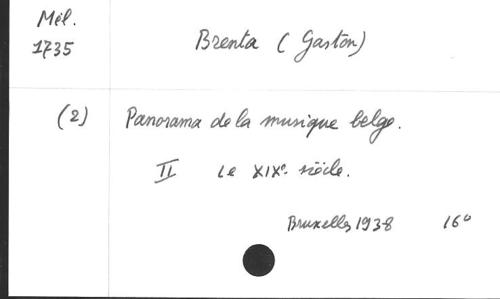 Mél.
1735
Brenta (Gaston)
(2) Panorama de la musique belge.
II Le XIXe siècle.
Bruxelles 1938 16°